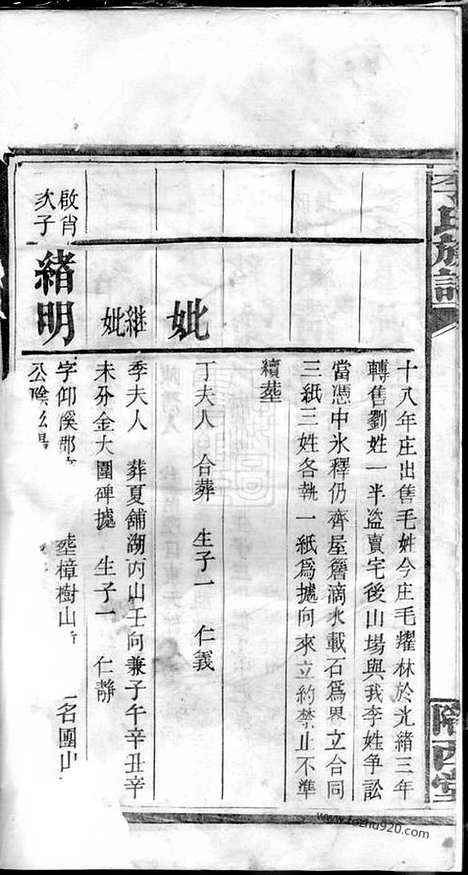 李氏族譜
隴西堂
十八年庄出售毛姓今庄毛耀林於光緒三年
轉售劉姓一半盗賣宅後山場與我李姓爭訟
當憑中氷釋仍齊屋簷滴水載石爲界立合同
三紙三姓各執一紙爲據向來立約禁止不準
續塟
妣
丁夫人 合葬 生子一 仁義
継妣
李夫人 葬夏舖湖丙山壬向兼子午辛丑辛
未分金大圍碑據 生子一 仁靜
啟肖次子
緒明
字仰溪郡
塟樟樹山
名團山
www.fozhu920.com